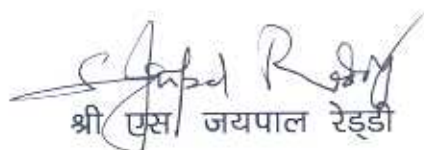 S Jaipal Reddy
श्री एस जयपाल रेड्डी